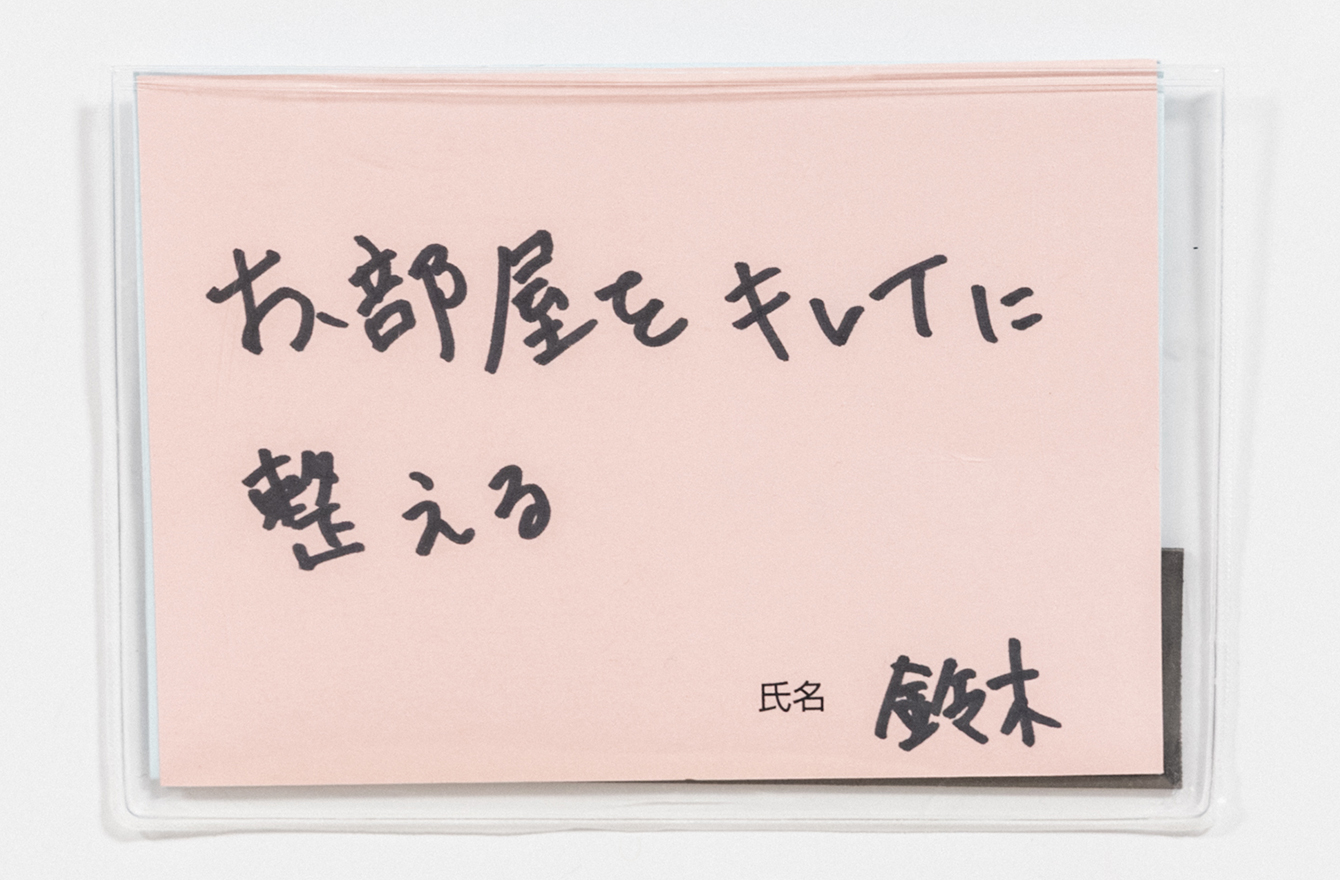 お部屋をキレイに
整える
氏名 鈴木